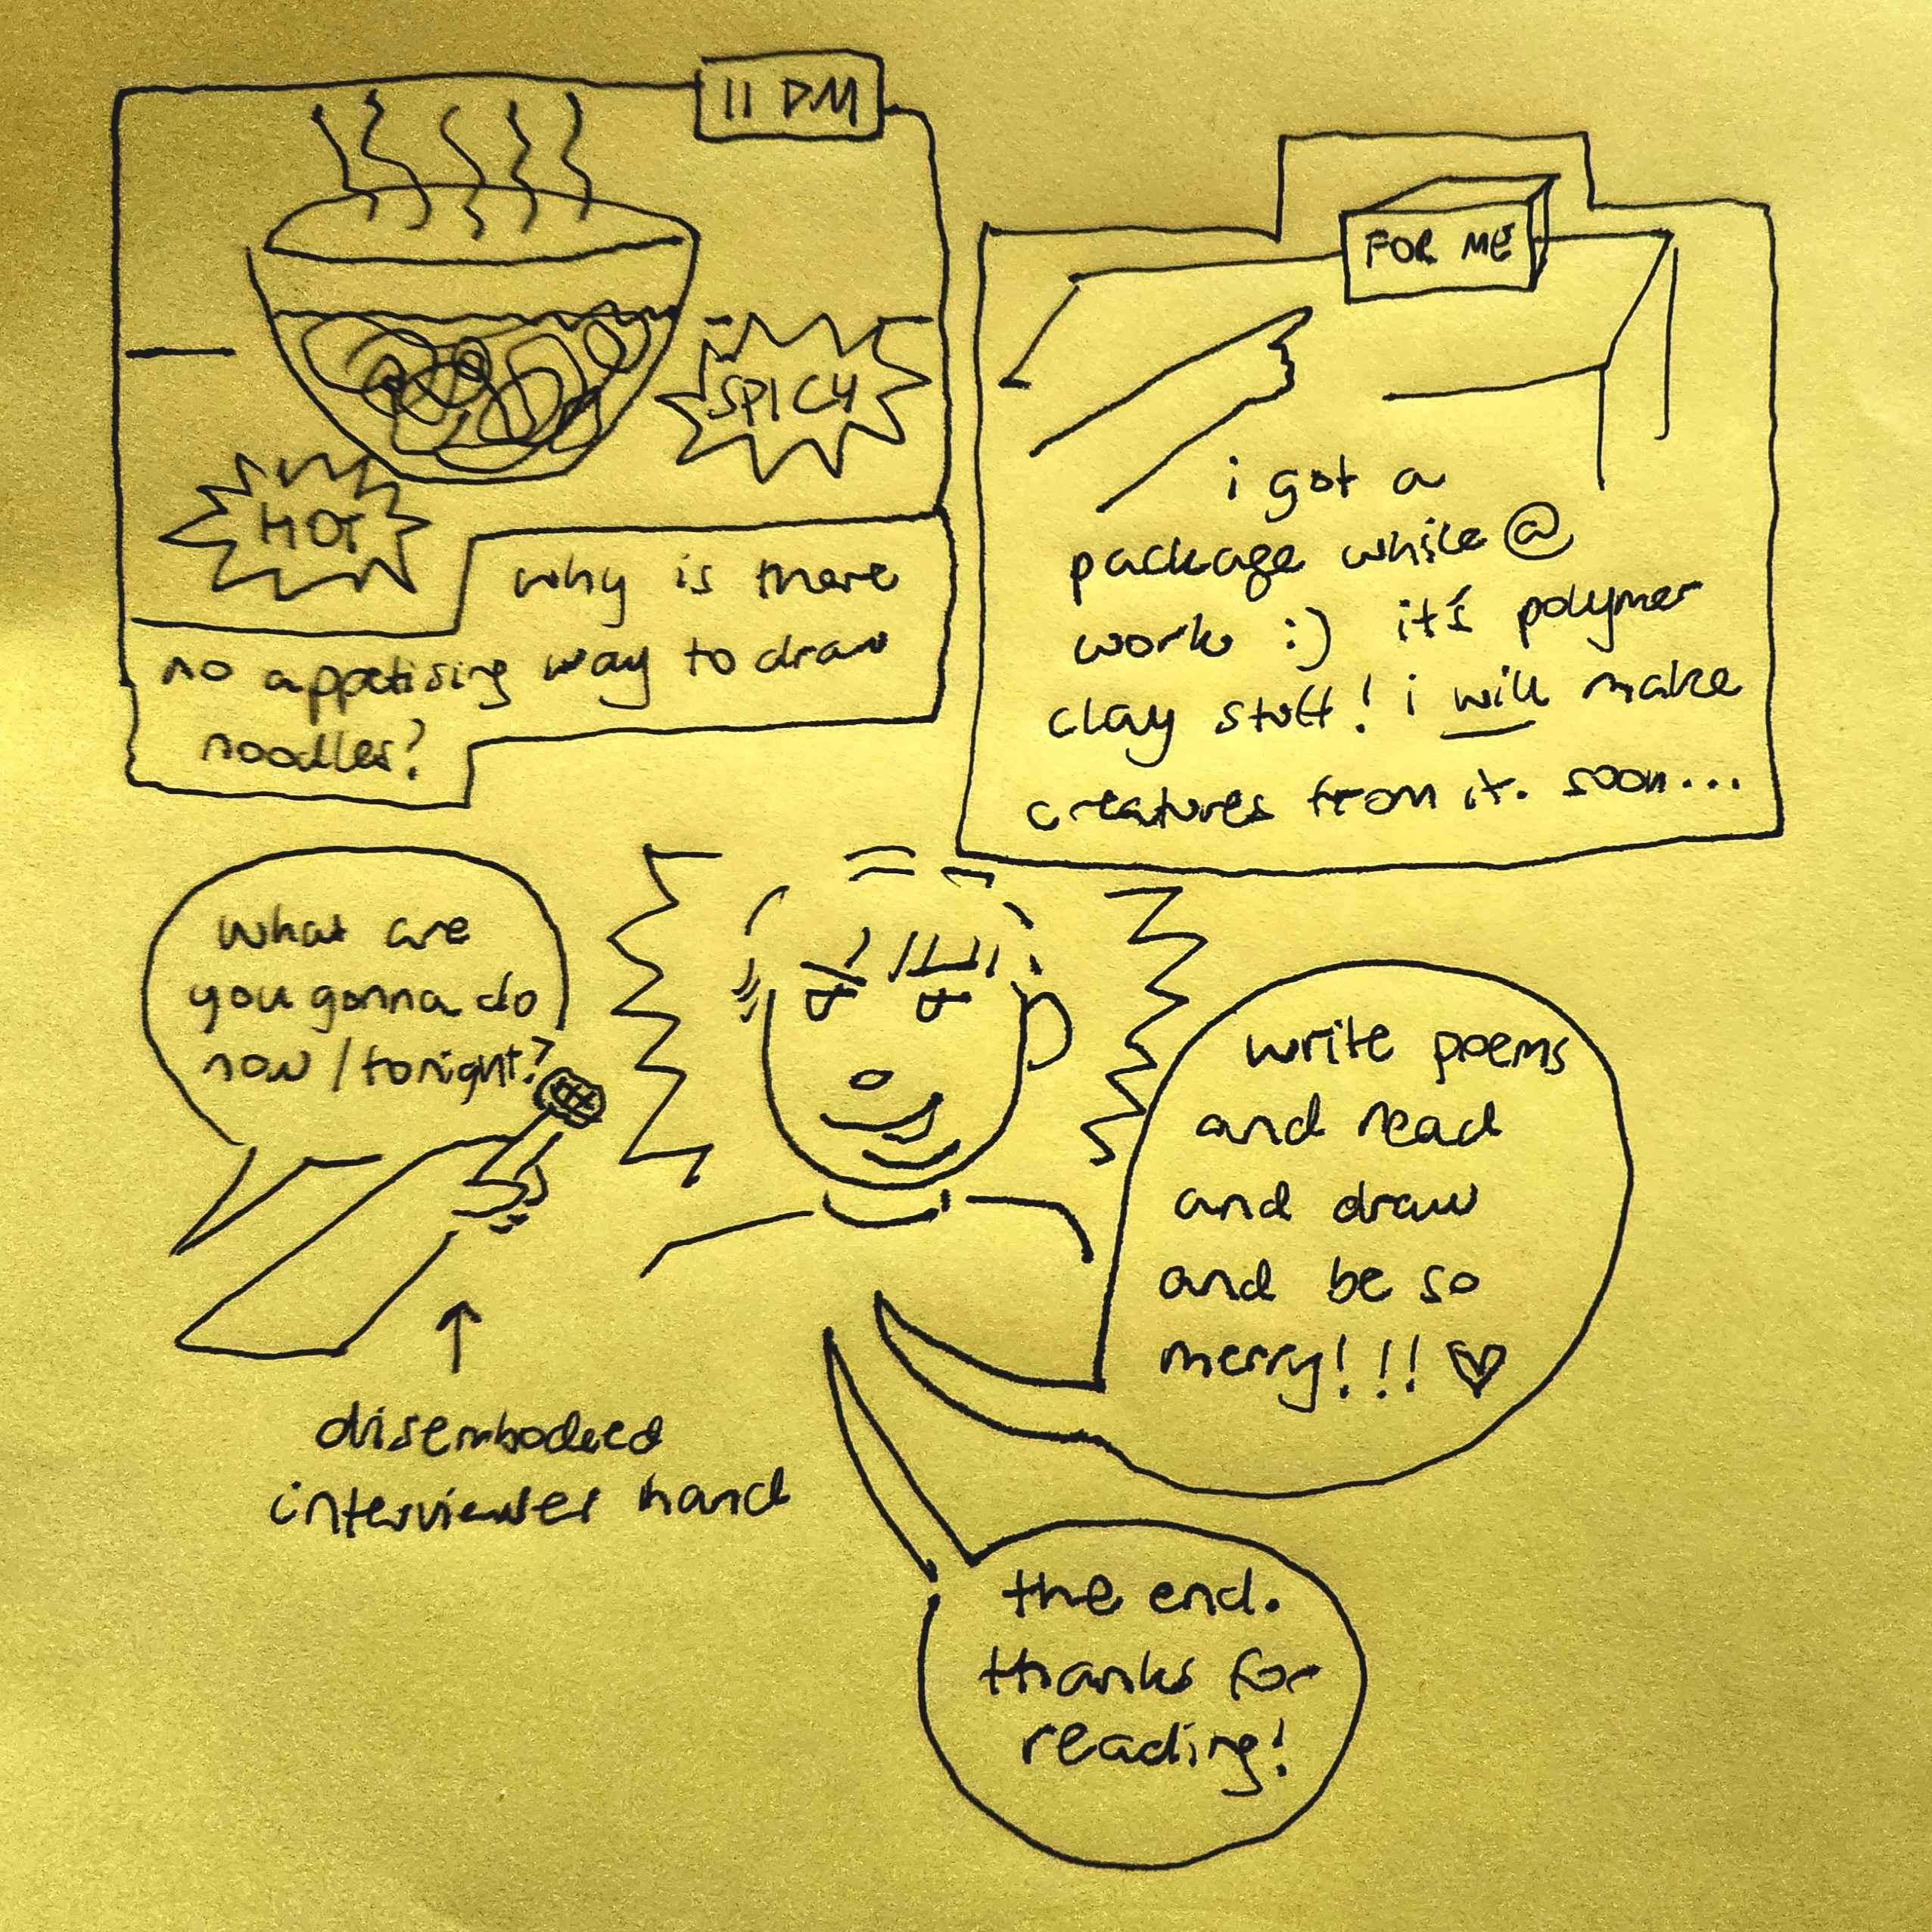 11 PM
SPICY
HOT
why is there
no appetising way to draw
noodles?
FOR ME
i got a
package while @
work :) it's polymer
clay stuff! i will make
creatures from it. soon...
what are
you gonna do
now / tonight?
write poems
and read
and draw
and be so
merry!!! ♡
↑
disembodied
interviewer hand
the end.
thanks for
reading!